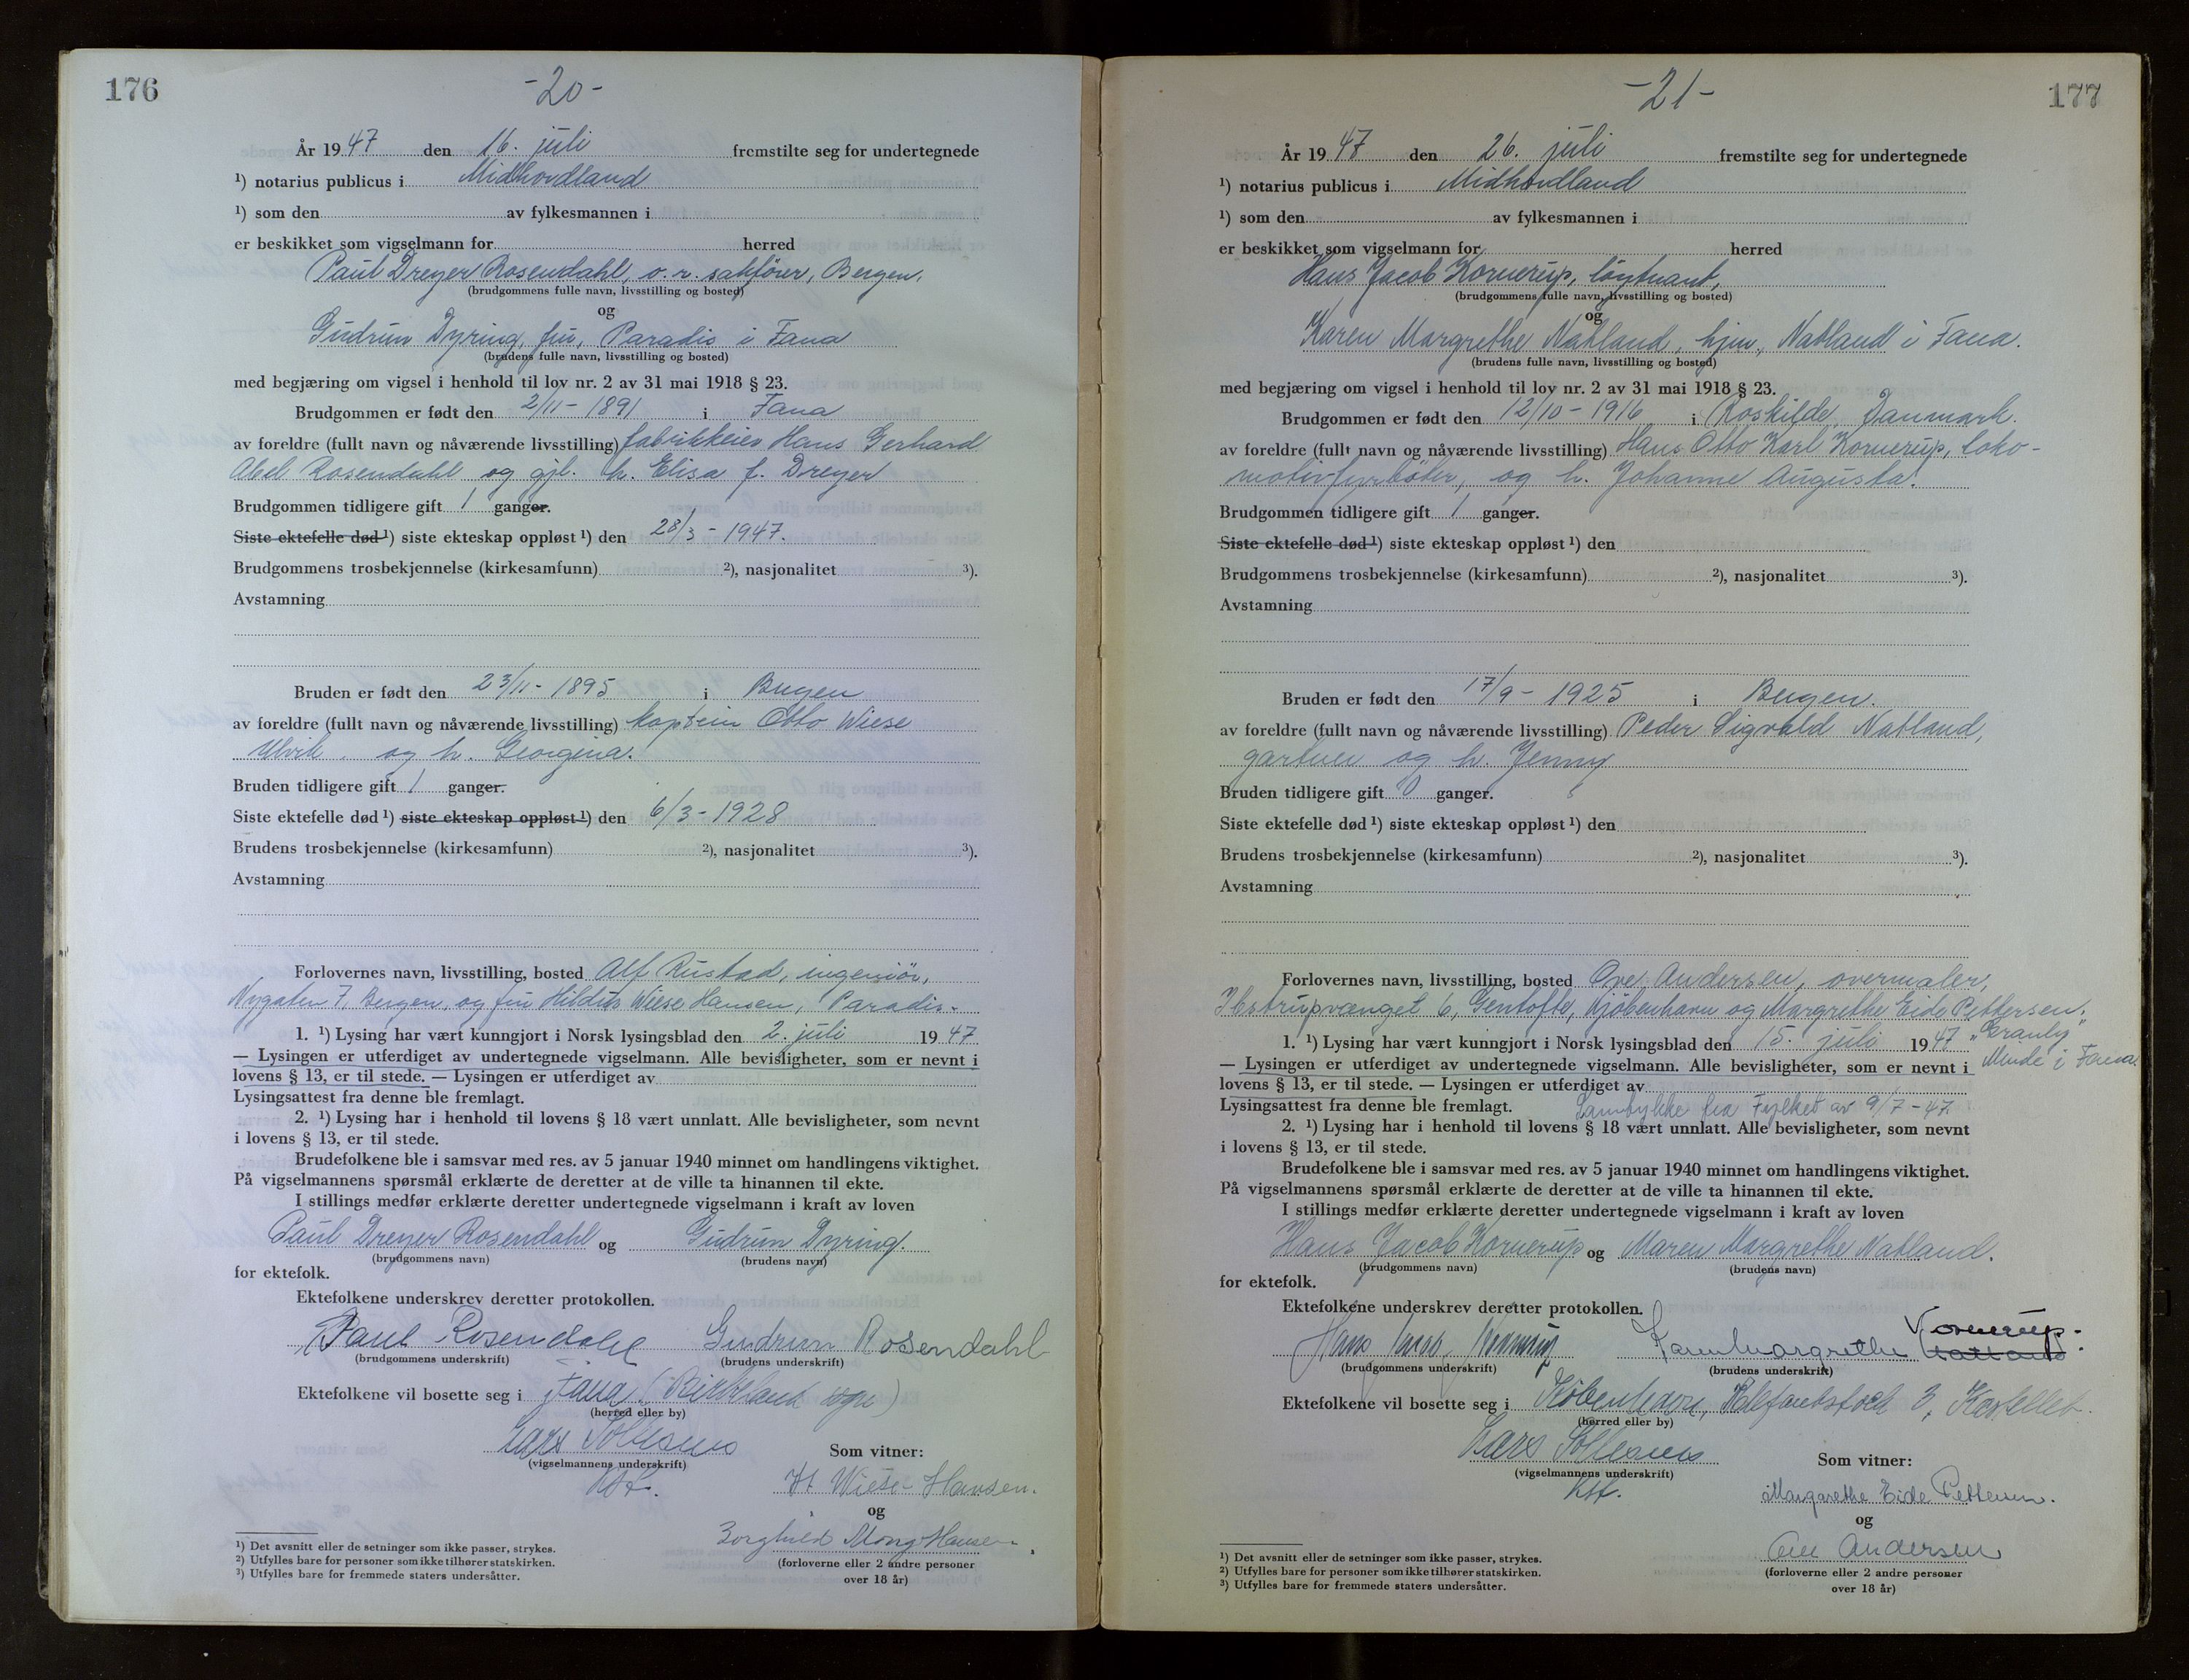 176
-20-
År 1947 den 16. juli fremstilte seg for undertegnede
¹) notarius publicus i Midhordland
¹) som den av fylkesmannen i
er beskikket som vigselmann for herred
Paul Dreyer Rosendahl, o.r. sakfører, Bergen,
(brudgommens fulle navn, livsstilling og bosted)
og
Gudrun Dyring, fru, Paradis i Fana
(brudens fulle navn, livsstilling og bosted)
med begjæring om vigsel i henhold til lov nr. 2 av 31 mai 1918 § 23.
Brudgommen er født den 2/11 - 1891 i Fana
av foreldre (fullt navn og nåværende livsstilling) fabrikkeier Hans Gerhard
Abel Rosendahl og gjl. h. Elisa f. Dreyer
Brudgommen tidligere gift 1 ganger.
Siste ektefelle død ¹) siste ekteskap oppløst ¹) den 28/3 - 1947.
Brudgommens trosbekjennelse (kirkesamfunn) ²), nasjonalitet ³).
Avstamning
Bruden er født den 23/11 - 1895 i Bergen
av foreldre (fullt navn og nåværende livsstilling) kaptein Otto Wiese
Ulvik, og h. Georgina.
Bruden tidligere gift 1 ganger.
Siste ektefelle død ¹) siste ekteskap oppløst ¹) den 6/3 - 1928
Brudens trosbekjennelse (kirkesamfunn) ²), nasjonalitet ³).
Avstamning
Forlovernes navn, livsstilling, bosted Alf Rustad, ingeniør,
Nygaten 7, Bergen, og fru Hildus Wiese Hansen, Paradis.
1. ¹) Lysing har vært kunngjort i Norsk lysingsblad den 2. juli 1947
— Lysingen er utferdiget av undertegnede vigselmann. Alle bevisligheter, som er nevnt i
lovens § 13, er til stede. — Lysingen er utferdiget av
Lysingsattest fra denne ble fremlagt.
2. ¹) Lysing har i henhold til lovens § 18 vært unnlatt. Alle bevisligheter, som nevnt
i lovens § 13, er til stede.
Brudefolkene ble i samsvar med res. av 5 januar 1940 minnet om handlingens viktighet.
På vigselmannens spørsmål erklærte de deretter at de ville ta hinannen til ekte.
I stillings medfør erklærte deretter undertegnede vigselmann i kraft av loven
Paul Dreyer Rosendahl og Gudrun Dyring.
(brudgommens navn) (brudens navn)
for ektefolk.
Ektefolkene underskrev deretter protokollen.
Paul Rosendahl Gudrun Rosendahl
(brudgommens underskrift) (brudens underskrift)
Ektefolkene vil bosette seg i Fana (Birkeland sogn)
(herred eller by)
Lars Sollesnes
(vigselmannens underskrift)
Som vitner:
H Wiese-Hansen.
og
Borghild Mong Hansen.
(forloverne eller 2 andre personer
over 18 år)
¹) Det avsnitt eller de setninger som ikke passer, strykes.
²) Utfylles bare for personer som ikke tilhører statskirken.
³) Utfylles bare for fremmede staters undersåtter.
177
-21-
År 1947 den 26. juli fremstilte seg for undertegnede
¹) notarius publicus i Midhordland
¹) som den av fylkesmannen i
er beskikket som vigselmann for herred
Hans Jacob Kornerup, løytnant,
(brudgommens fulle navn, livsstilling og bosted)
og
Karen Margrethe Natland, hjm., Natland i Fana.
(brudens fulle navn, livsstilling og bosted)
med begjæring om vigsel i henhold til lov nr. 2 av 31 mai 1918 § 23.
Brudgommen er født den 12/10 - 1916 i Roskilde, Danmark.
av foreldre (fullt navn og nåværende livsstilling) Hans Otto Karl Kornerup, loko-
motivfyrbøter, og h. Johanne Augusta.
Brudgommen tidligere gift 1 ganger.
Siste ektefelle død ¹) siste ekteskap oppløst ¹) den
Brudgommens trosbekjennelse (kirkesamfunn) ²), nasjonalitet ³).
Avstamning
Bruden er født den 17/9 - 1925 i Bergen.
av foreldre (fullt navn og nåværende livsstilling) Peder Sigvald Natland,
gartner og h. Jenny
Bruden tidligere gift 0 ganger.
Siste ektefelle død ¹) siste ekteskap oppløst ¹) den
Brudens trosbekjennelse (kirkesamfunn) ²), nasjonalitet ³).
Avstamning
Forlovernes navn, livsstilling, bosted Ove Andersen, overmaler,
Ibstrupvænget 6, Gentofte, Kjøbenhavn og Margrethe Eide Pettersen,
"Granly"
1. ¹) Lysing har vært kunngjort i Norsk lysingsblad den 15. juli 1947
Minde i Fana.
— Lysingen er utferdiget av undertegnede vigselmann. Alle bevisligheter, som er nevnt i
lovens § 13, er til stede. — Lysingen er utferdiget av
Lysingsattest fra denne ble fremlagt. Samtykke fra Fylket av 9/7 - 47.
2. ¹) Lysing har i henhold til lovens § 18 vært unnlatt. Alle bevisligheter, som nevnt
i lovens § 13, er til stede.
Brudefolkene ble i samsvar med res. av 5 januar 1940 minnet om handlingens viktighet.
På vigselmannens spørsmål erklærte de deretter at de ville ta hinannen til ekte.
I stillings medfør erklærte deretter undertegnede vigselmann i kraft av loven
Hans Jacob Kornerup og Maren Margrethe Natland.
(brudgommens navn) (brudens navn)
for ektefolk.
Ektefolkene underskrev deretter protokollen.
Hans Jacob Kornerup Karen Margrethe Natland Kornerup.
(brudgommens underskrift) (brudens underskrift)
Ektefolkene vil bosette seg i København, Elefantstock 3, Kastellet.
(herred eller by)
Lars Sollesnes
(vigselmannens underskrift)
Kst.
Som vitner:
Margarethe Eide Pettersen.
og
Ove Andersen
(forloverne eller 2 andre personer
over 18 år)
¹) Det avsnitt eller de setninger som ikke passer, strykes.
²) Utfylles bare for personer som ikke tilhører statskirken.
³) Utfylles bare for fremmede staters undersåtter.